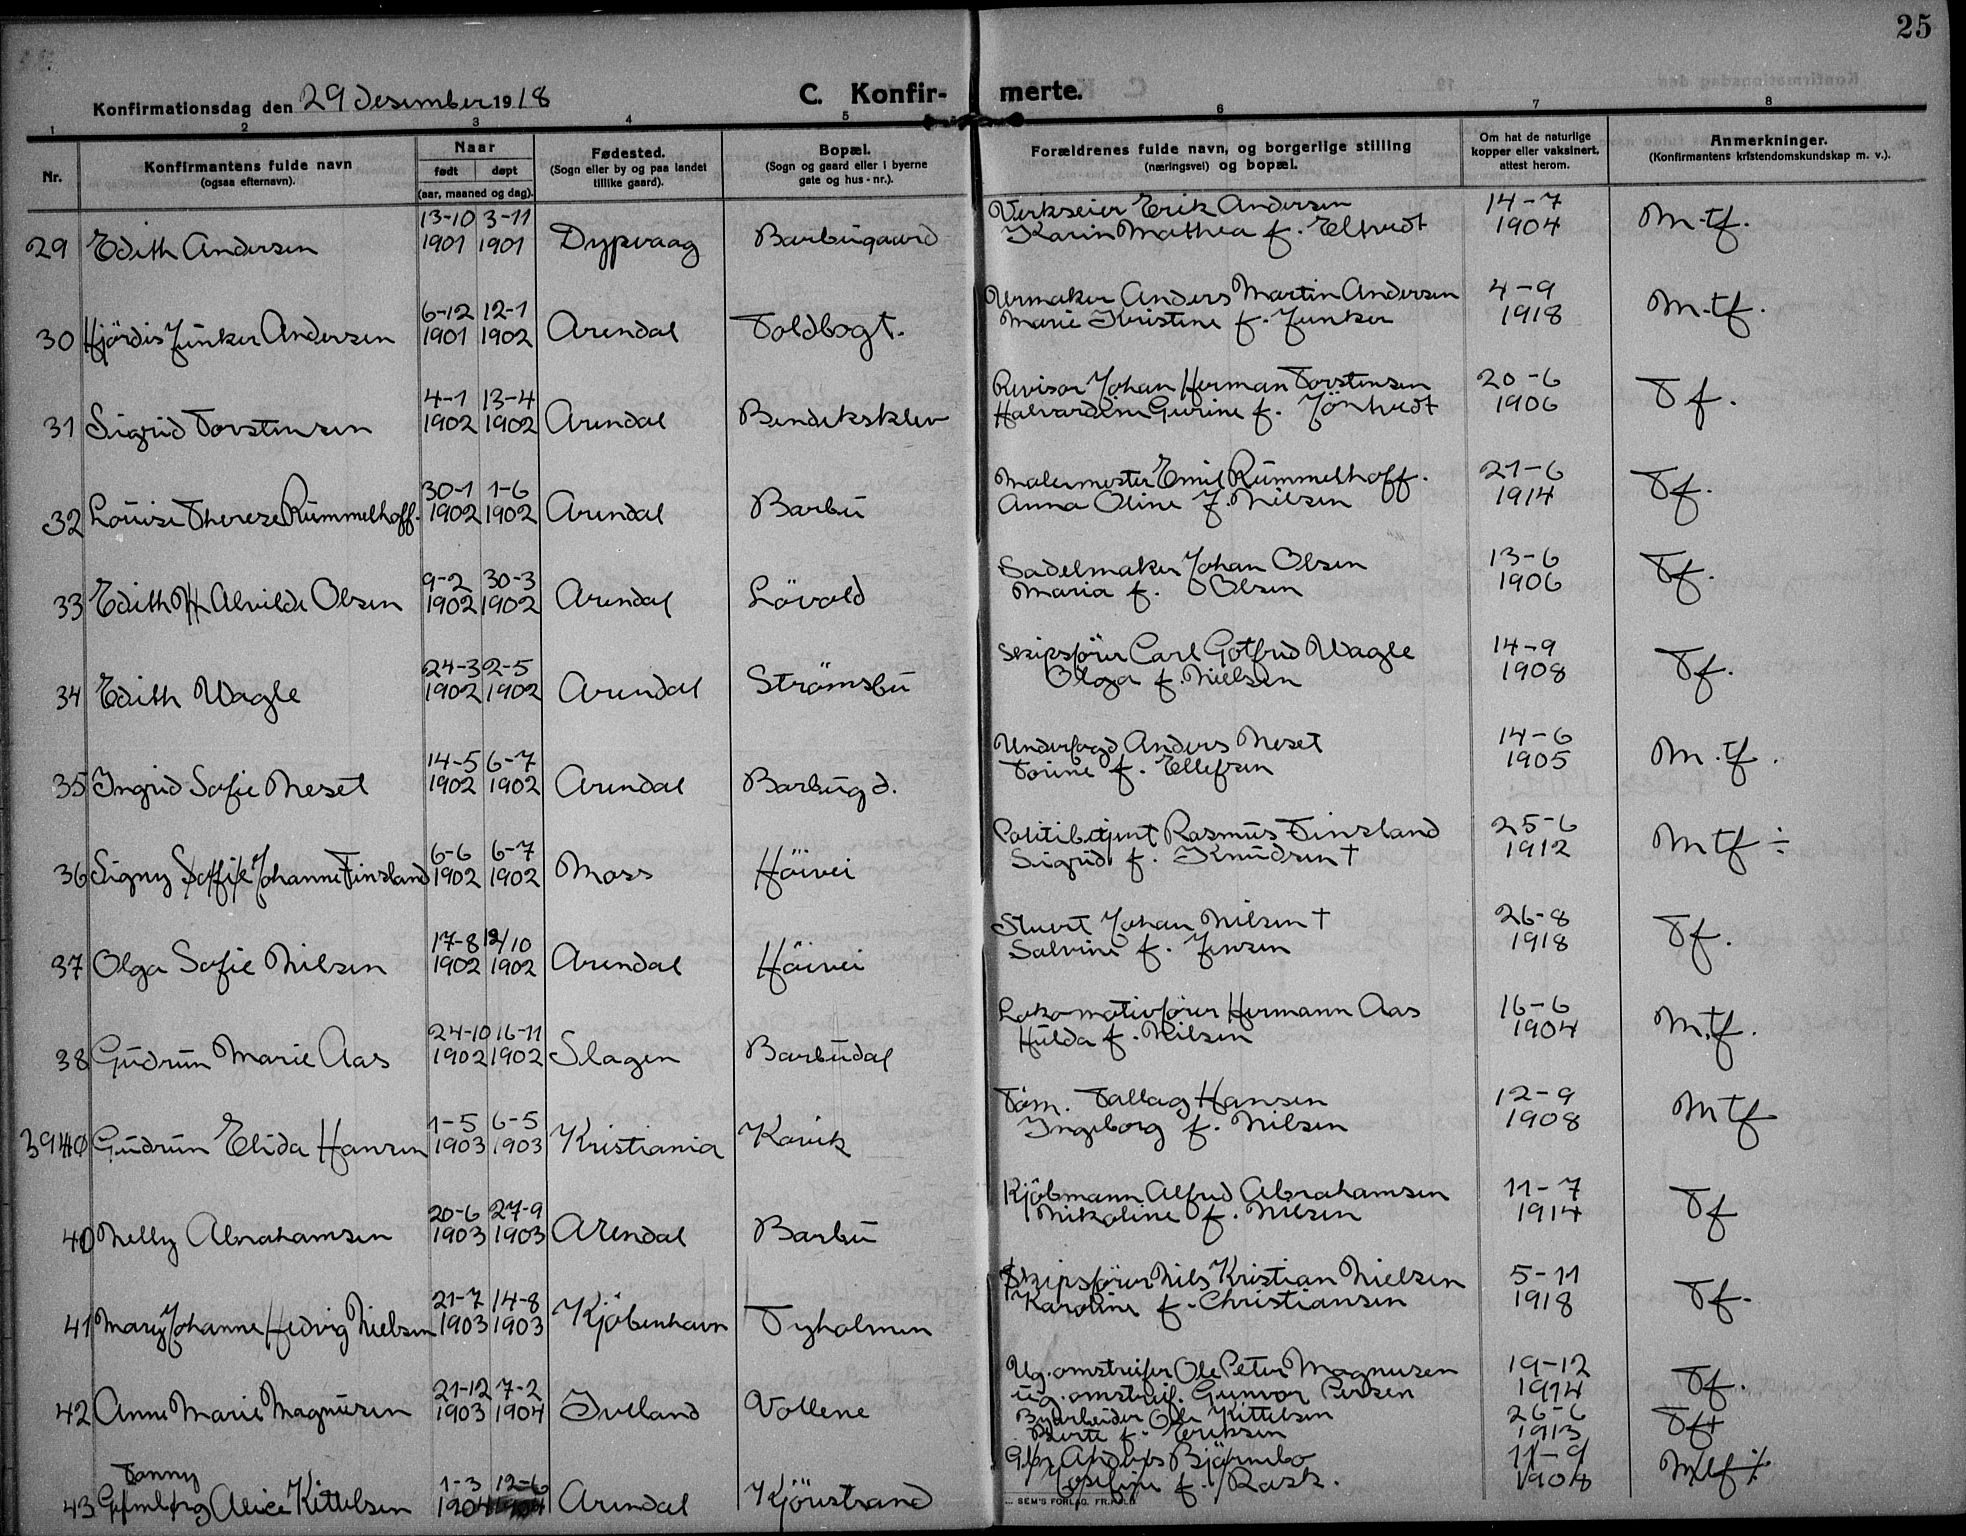 25
Konfirmationsdag den 29 Desember 1918
C. Konfir- merte.
1 2 3 4 5 6 7 8
Nr.
Konfirmantens fulde navn
(ogsaa efternavn).
Naar
født døpt
(aar, maaned og dag).
Fødested.
(Sogn eller by og paa landet
tillike gaard).
Bopæl.
(Sogn og gaard eller i byerne
gate og hus-nr.).
Forældrenes fulde navn, og borgerlige stilling
(næringsvei) og bopæl.
Om hat de naturlige
kopper eller vaksinert,
attest herom.
Anmerkninger.
(Konfirmantens kristendomskundskap m. v.).
13-10 3-11 Verkseier Erik Andersen 14-7
29 Edith Andersen 1901 1901 Dypvaag Barbugaard Karin Mathea f. Eltvedt 1904 M.tf.
6-12 12-1 Urmaker Anders Martin Andersen 4-9
30 Hjördis Junker Andersen 1901 1902 Arendal Toldbogt. Marie Kristine f. Junker 1918 M.tf.
4-1 13-4 Revisor Johan Herman Torstensen 20-6
31 Sigrid Torstensen 1902 1902 Arendal Bendiksklev Halvardine Gurine f. Jöntvedt 1906 Tf.
30-1 1-6 Malermester Emil Rummelhoff. 21-6
32 Louise Therese Rummelhoff. 1902 1902 Arendal Barbu Anna Oline f. Nilsen 1914 Tf.
9-2 30-3 Sadelmaker Johan Olsen 13-6
33 Edith H Alvilde Olsen 1902 1902 Arendal Lövold Maria f. Olsen 1906 Tf.
24-3 2-5 Skipsförer Carl Gotfred Wagle 14-9
34 Edith Wagle 1902 1902 Arendal Strömsbu Olga f. Nielsen 1908 Tf.
14-5 6-7 Underfogd Anders Neset 14-6
35 Ingrid Sofie Neset 1902 1902 Arendal Barbugd. Torine f. Ellefsen 1905 M.tf.
6-6 6-7 Politibetjent Rasmus Finsland 25-6
36 Signy Soffie Johanne Finsland 1902 1902 Moss Höivei Sigrid f. Knudsen † 1912 Mtf ÷
17-8 12/10 Stuert Johan Nilsen † 26-8
37 Olga Sofie Nilsen 1902 1902 Arendal Höivei Salvine f. Jensen 1918 Tf.
24-10 16-11 Lokomotivförer Hermann Aas 16-6
38 Gudrun Marie Aas 1902 1902 Slagen Barbudal Hulda f. Nilsen 1904 M.tf.
1-5 6-5 Töm. Tallag Hansen 12-9
39 40 Gudrun Elida Hansen 1903 1903 Kristiania Kavik Ingeborg f. Nilsen 1908 Mtf
20-6 27-9 Kjöbmann Alfred Abrahamsen 11-7
40 Nelly Abrahamsen 1903 1903 Arendal Barbu Nikoline f. Nilsen 1914 Tf
21-7 14-8 Skipsförer Nils Kristian Nielsen 5-11
41 Mary Johanne Hedvig Nielsen 1903 1903 Kjöbenhavn Tyholmen Karoline f. Christiansen 1918 Tf.
21-12 7-2 Ug. omstreifer Ole Peter Magnusen 19-12
42 Anne Marie Magnusen 1903 1904 Ivelland Vollene ug. omstreif. Gunvor Persen 1914 Tf.
Byarbeider Ole Kittelsen 26-6
Berte f. Eriksen 1913 Tf+
Bjørnebo 11-9
Fanny 1-3 12-6 Josefine f. Rask. 1908 Mtf
43 Alice Kittelsen 1904 1904 Arendal Kjörestrand
SEM'S FORLAG. FR.HALD